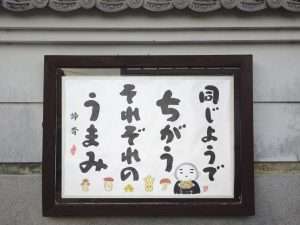 同じようで
ちがう
それぞれの
うまみ